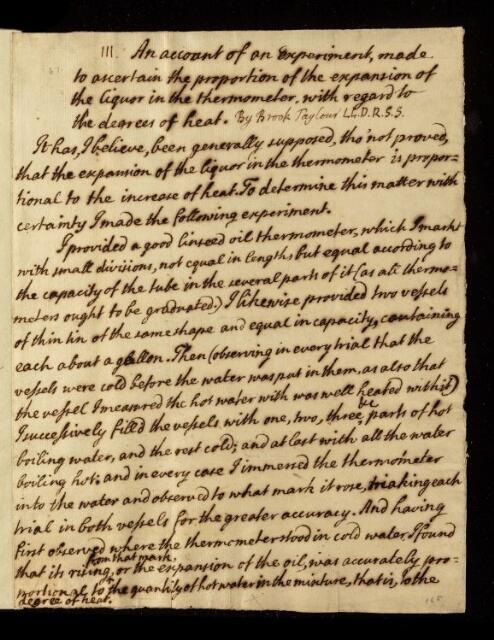 III. An account of an Experiment, made
to ascertain the proportion of the expansion of
the liquor in the thermometer, with regard to
the degrees of heat. By Brook Taylour LL.D. R.S.S.
It has, I believe, been generally supposed, tho' not proved,
that the expansion of the liquor in the thermometer is propor=
tional to the increase of heat. To determine this matter with
certainty I made the following experiment.
I provided a good linseed oil thermometer, which I markt
with small divisions, not equal in length, but equal according to
the capacity of the tube in the several parts of it (as all thermo=
meters ought to be graduated.) I likewise provided two vessels
of thin tin of the same shape and equal in capacity, containing
each about a gallon. Then (observing in every trial that the
vessels were cold before the water was put in them, as also that
the vessel I measured the hot water with was well heated with it)
I successively filled the vessels with one, two, three, &c parts of hot
boiling water, and the rest cold; and at last with all the water
boiling hot; and in every case I immersed the thermometer
into the water and observed to what mark it rose, making each
trial in both vessels for the greater accuracy. And having
first observed where the thermometer stood in cold water, I found
that its rising from that mark, or the expansion of the oil, was accurately pro=
portional to the quantity of hot water in the mixture, that is, to the
degree of heat.